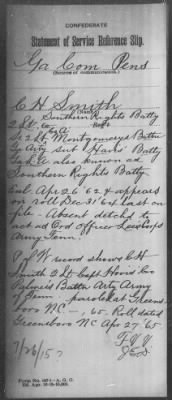 CONFEDERATE
Statement of Service Reference Slip.
Ga Com Pens
(Source of communication.)
C H Smith
(Name)
Southern Rights Batty
2 Lt. Co.
Regt.
2 Lt. Montgomerys Battn
Ga Arty sub Havis' Batty
Ga L A also known as
Southern Rights Batty
Enl. Apr 26 '62 & appears
on roll Dec 31 '64 last on
file - Absent detchd to
act as Ord officer
Army Tenn.
P of W record shows C H
Smith 2 Lt Capt Havis' Co
Palmer's Battn Arty Army
of Tenn. paroled at Greens
boro NC - , 65. Roll dated
Greensboro NC Apr 27 '65
7/26/15
Form No.